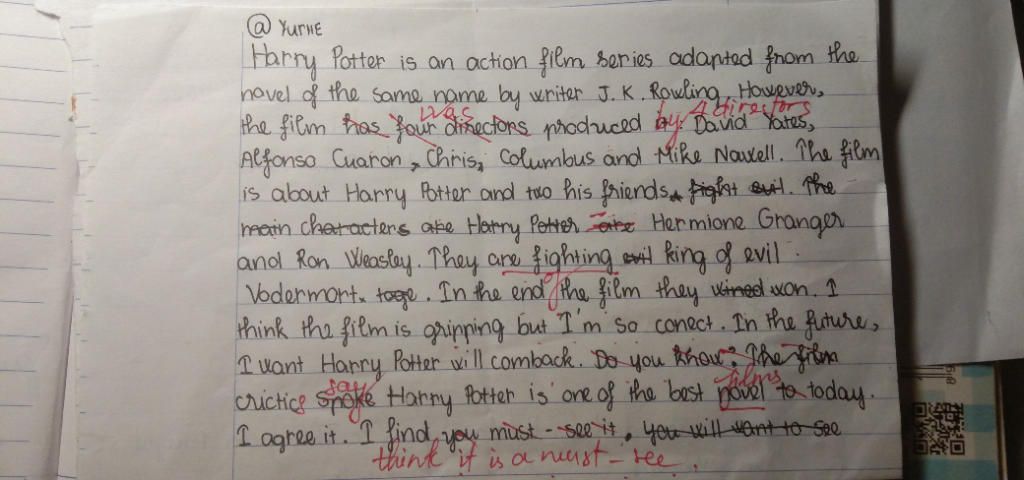 @ YuTHE
Harry Potter is an action film series adapted from the
novel of the same name by writer J. K. Rowling. However,
was by 4 directors
the film has four directors produced by. David Yates,
Alfonso Cuaron, Chris, Columbus and Mike Nawell. The film
is about Harry Potter and two his friends. fight evil. The
main characters are Harry Potter are Hermione Granger
and Ron Weasley. They are fighting evil king of evil
Vodermort. toge. In the end of the film they wined won. I
think the film is gripping but I'm so conect. In the future,
I want Harry Potter will comback. Do you know? The film
say films
cructics spoke Harry Potter is one of the best novel to today.
I agree it. I find you must-see it, you will want to see
think it is a must-see.